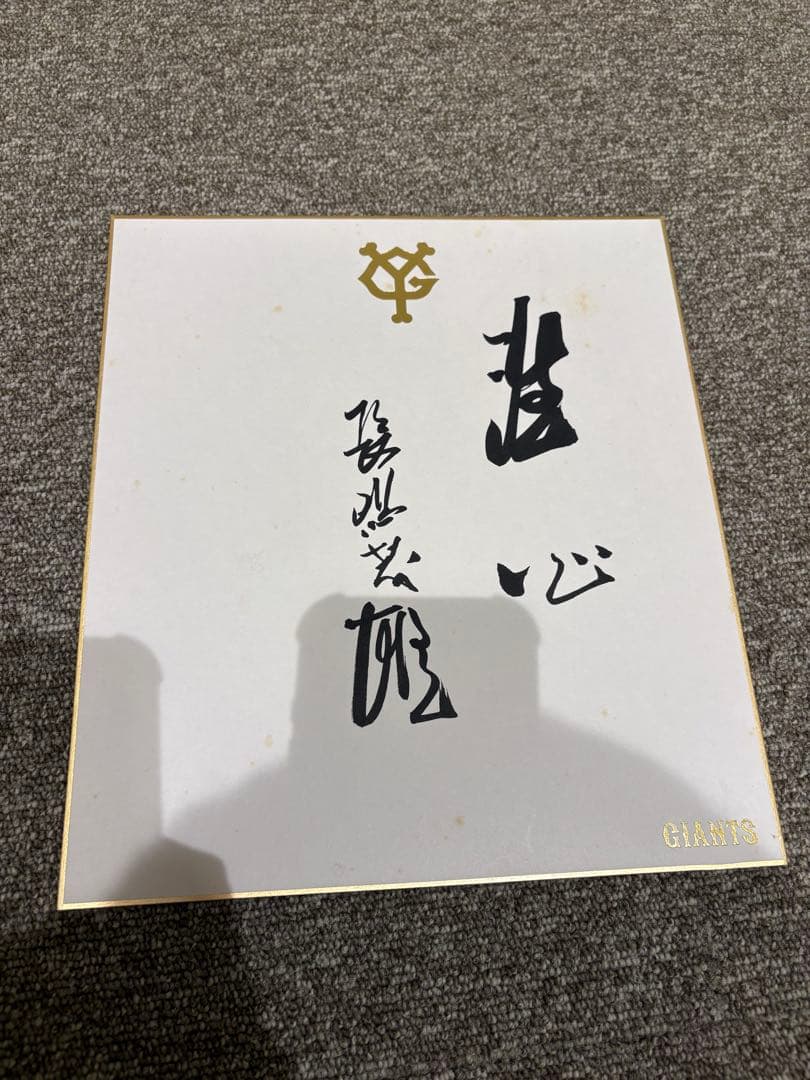 YG
心
長嶋茂雄
GIANTS